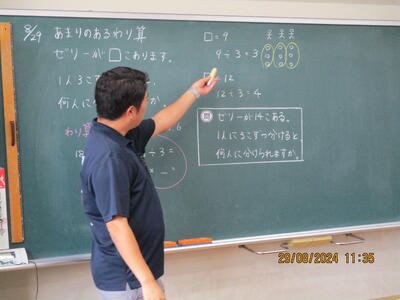 8/29 あまりのあるわり算
ゼリーが□こあります。
1人3こ
何人に分
わり算
□=9
9÷3=3
□=12
12÷3=4
問 ゼリーが14こある。
1人に3こずつ分けると、
何人に分けられますか。
29/08/2024 11:35